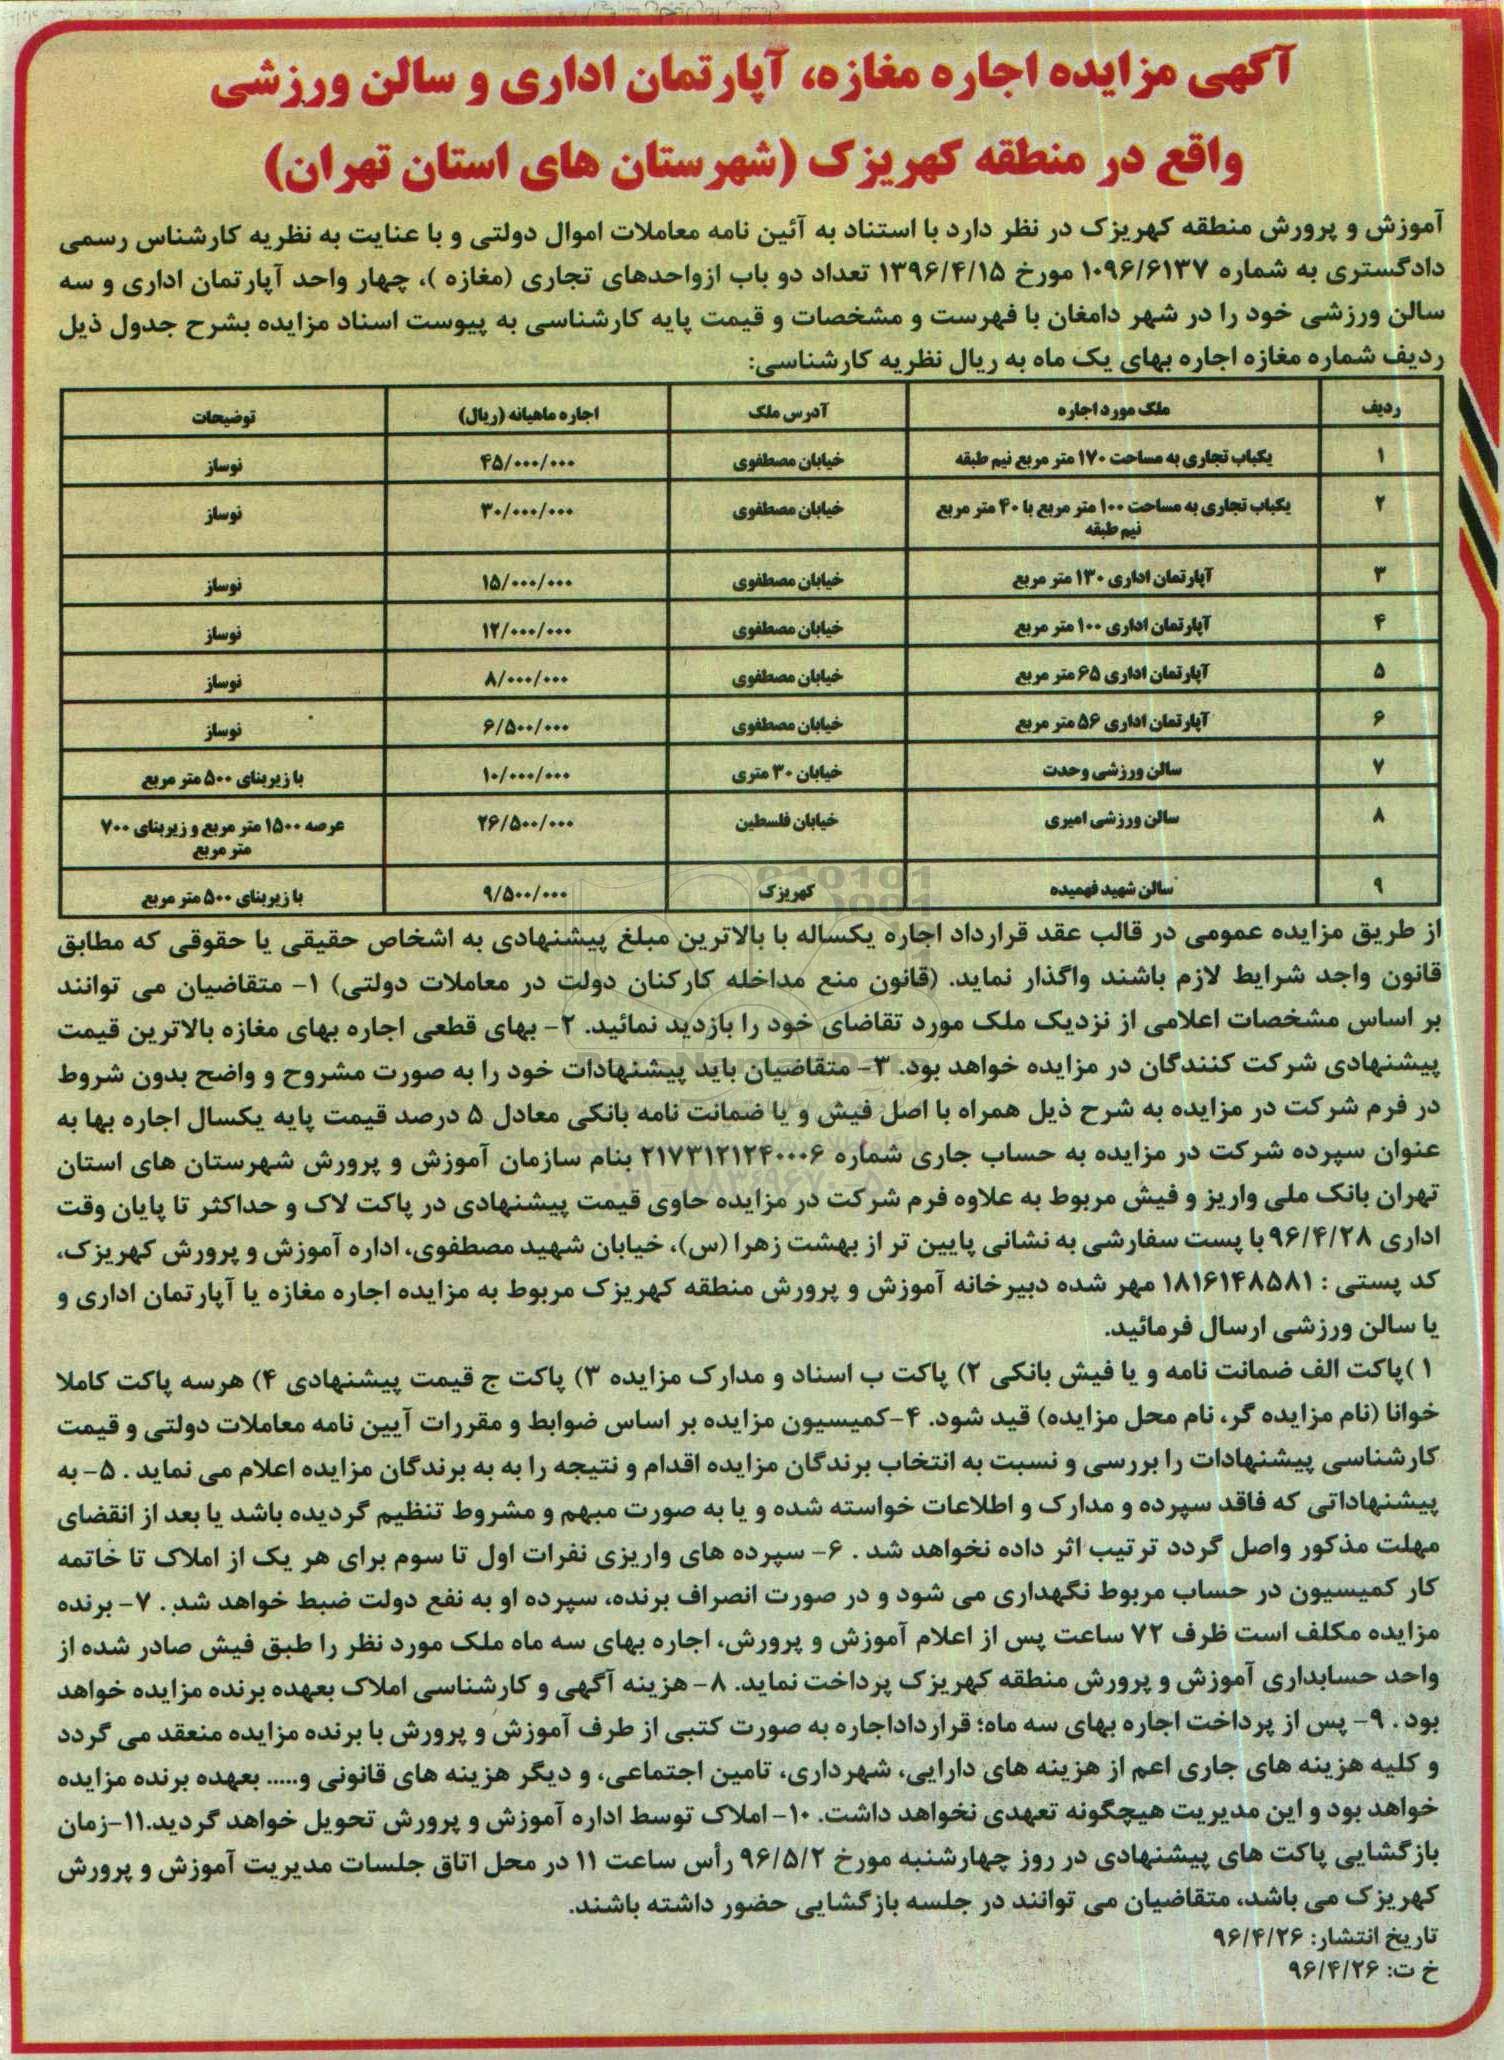 آگهی مزایده اجاره مغازه، آپارتمان اداری و سالن ورزشی
واقع در منطقه کهریزک (شهرستان های استان تهران)
آموزش و پرورش منطقه کهریزک در نظر دارد با استناد به آئین نامه معاملات اموال دولتی و با عنایت به نظریه کارشناس رسمی
دادگستری به شماره ۱۰۹۶/۶۱۳۷ مورخ ۱۳۹۶/۴/۱۵ تعداد دو باب ازواحدهای تجاری (مغازه )، چهار واحد آپارتمان اداری و سه
سالن ورزشی خود را در شهر دامغان با فهرست و مشخصات و قیمت پایه کارشناسی به پیوست اسناد مزایده بشرح جدول ذیل
ردیف شماره مغازه اجاره بهای یک ماه به ریال نظریه کارشناسی:
ردیف ملک مورد اجاره آدرس ملک اجاره ماهیانه (ریال) توضیحات
۱ یکباب تجاری به مساحت ۱۷۰ متر مربع نیم طبقه خیابان مصطفوی ۴۵/۰۰۰/۰۰۰ نوساز
۲ یکباب تجاری به مساحت ۱۰۰ متر مربع با ۴۰ متر مربع نیم طبقه خیابان مصطفوی ۳۰/۰۰۰/۰۰۰ نوساز
۳ آپارتمان اداری ۱۳۰ متر مربع خیابان مصطفوی ۱۵/۰۰۰/۰۰۰ نوساز
۴ آپارتمان اداری ۱۰۰ متر مربع خیابان مصطفوی ۱۲/۰۰۰/۰۰۰ نوساز
۵ آپارتمان اداری ۶۵ متر مربع خیابان مصطفوی ۸/۰۰۰/۰۰۰ نوساز
۶ آپارتمان اداری ۵۶ متر مربع خیابان مصطفوی ۶/۵۰۰/۰۰۰ نوساز
۷ سالن ورزشی وحدت خیابان ۳۰ متری ۱۰/۰۰۰/۰۰۰ با زیربنای ۵۰۰ متر مربع
۸ سالن ورزشی امیری خیابان فلسطین ۲۶/۵۰۰/۰۰۰ عرصه ۱۵۰۰ متر مربع و زیربنای ۷۰۰ متر مربع
۹ سالن شهید فهمیده کهریزک ۹/۵۰۰/۰۰۰ با زیربنای ۵۰۰ متر مربع
از طریق مزایده عمومی در قالب عقد قرارداد اجاره یکساله با بالاترین مبلغ پیشنهادی به اشخاص حقیقی یا حقوقی که مطابق
قانون واجد شرایط لازم باشند واگذار نماید. (قانون منع مداخله کارکنان دولت در معاملات دولتی) ۱- متقاضیان می توانند
بر اساس مشخصات اعلامی از نزدیک ملک مورد تقاضای خود را بازدید نمائید. ۲- بهای قطعی اجاره بهای مغازه بالاترین قیمت
پیشنهادی شرکت کنندگان در مزایده خواهد بود. ۳- متقاضیان باید پیشنهادات خود را به صورت مشروح و واضح بدون شروط
در فرم شرکت در مزایده به شرح ذیل همراه با اصل فیش و یا ضمانت نامه بانکی معادل ۵ درصد قیمت پایه یکسال اجاره بها به
عنوان سپرده شرکت در مزایده به حساب جاری شماره ۲۱۷۳۱۲۱۲۴۰۰۰۶ بنام سازمان آموزش و پرورش شهرستان های استان
تهران بانک ملی واریز و فیش مربوط به علاوه فرم شرکت در مزایده حاوی قیمت پیشنهادی در پاکت لاک و حداکثر تا پایان وقت
اداری ۹۶/۴/۲۸ با پست سفارشی به نشانی پایین تر از بهشت زهرا (س)، خیابان شهید مصطفوی، اداره آموزش و پرورش کهریزک،
کد پستی : ۱۸۱۶۱۴۸۵۸۱ مهر شده دبیرخانه آموزش و پرورش منطقه کهریزک مربوط به مزایده اجاره مغازه یا آپارتمان اداری و
یا سالن ورزشی ارسال فرمائید.
۱ )پاکت الف ضمانت نامه و یا فیش بانکی ۲) پاکت ب اسناد و مدارک مزایده ۳) پاکت ج قیمت پیشنهادی ۴) هرسه پاکت کاملا
خوانا (نام مزایده گر، نام محل مزایده) قید شود. ۴-کمیسیون مزایده بر اساس ضوابط و مقررات آیین نامه معاملات دولتی و قیمت
کارشناسی پیشنهادات را بررسی و نسبت به انتخاب برندگان مزایده اقدام و نتیجه را به به برندگان مزایده اعلام می نماید . ۵- به
پیشنهاداتی که فاقد سپرده و مدارک و اطلاعات خواسته شده و یا به صورت مبهم و مشروط تنظیم گردیده باشد یا بعد از انقضای
مهلت مذکور واصل گردد ترتیب اثر داده نخواهد شد . ۶- سپرده های واریزی نفرات اول تا سوم برای هر یک از املاک تا خاتمه
کار کمیسیون در حساب مربوط نگهداری می شود و در صورت انصراف برنده، سپرده او به نفع دولت ضبط خواهد شد. . ۷- برنده
مزایده مکلف است ظرف ۷۲ ساعت پس از اعلام آموزش و پرورش، اجاره بهای سه ماه ملک مورد نظر را طبق فیش صادر شده از
واحد حسابداری آموزش و پرورش منطقه کهریزک پرداخت نماید. ۸- هزینه آگهی و کارشناسی املاک بعهده برنده مزایده خواهد
بود . ۹- پس از پرداخت اجاره بهای سه ماه؛ قرارداداجاره به صورت کتبی از طرف آموزش و پرورش با برنده مزایده منعقد می گردد
و کلیه هزینه های جاری اعم از هزینه های دارایی، شهرداری، تامین اجتماعی، و دیگر هزینه های قانونی و..... بعهده برنده مزایده
خواهد بود و این مدیریت هیچگونه تعهدی نخواهد داشت. ۱۰- املاک توسط اداره آموزش و پرورش تحویل خواهد گردید.۱۱-زمان
بازگشایی پاکت های پیشنهادی در روز چهارشنبه مورخ ۹۶/۵/۲ رأس ساعت ۱۱ در محل اتاق جلسات مدیریت آموزش و پرورش
کهریزک می باشد، متقاضیان می توانند در جلسه بازگشایی حضور داشته باشند.
تاریخ انتشار: ۹۶/۴/۲۶
خ ت: ۹۶/۴/۲۶